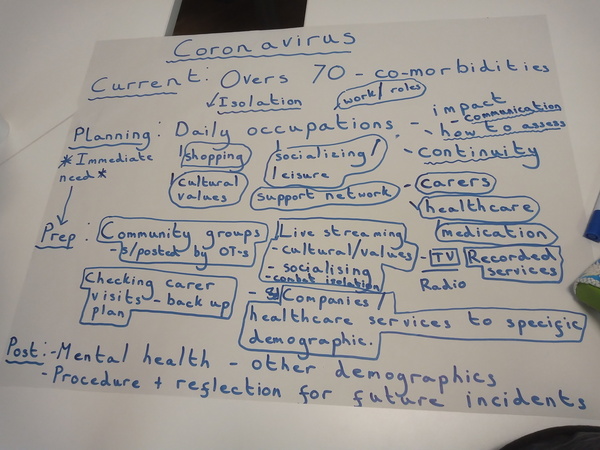 Coronavirus
Current: Overs 70 - co-morbidities
Isolation
work/roles
Planning: Daily occupations - impact
- communication
- how to assess
* Immediate need *
shopping
socializing/
leisure
- continuity
cultural
values
support network
- carers
healthcare
medication
Prep: Community groups
- s/posted by OT-s
Live streaming
- cultural/values
- socialising
- combat isolation
- TV
Recorded
services
Radio
Checking carer
visits - back up
plan
- Companies/
healthcare services to specific
demographic.
Post: - Mental health - other demographics
- Procedure + reflection for future incidents